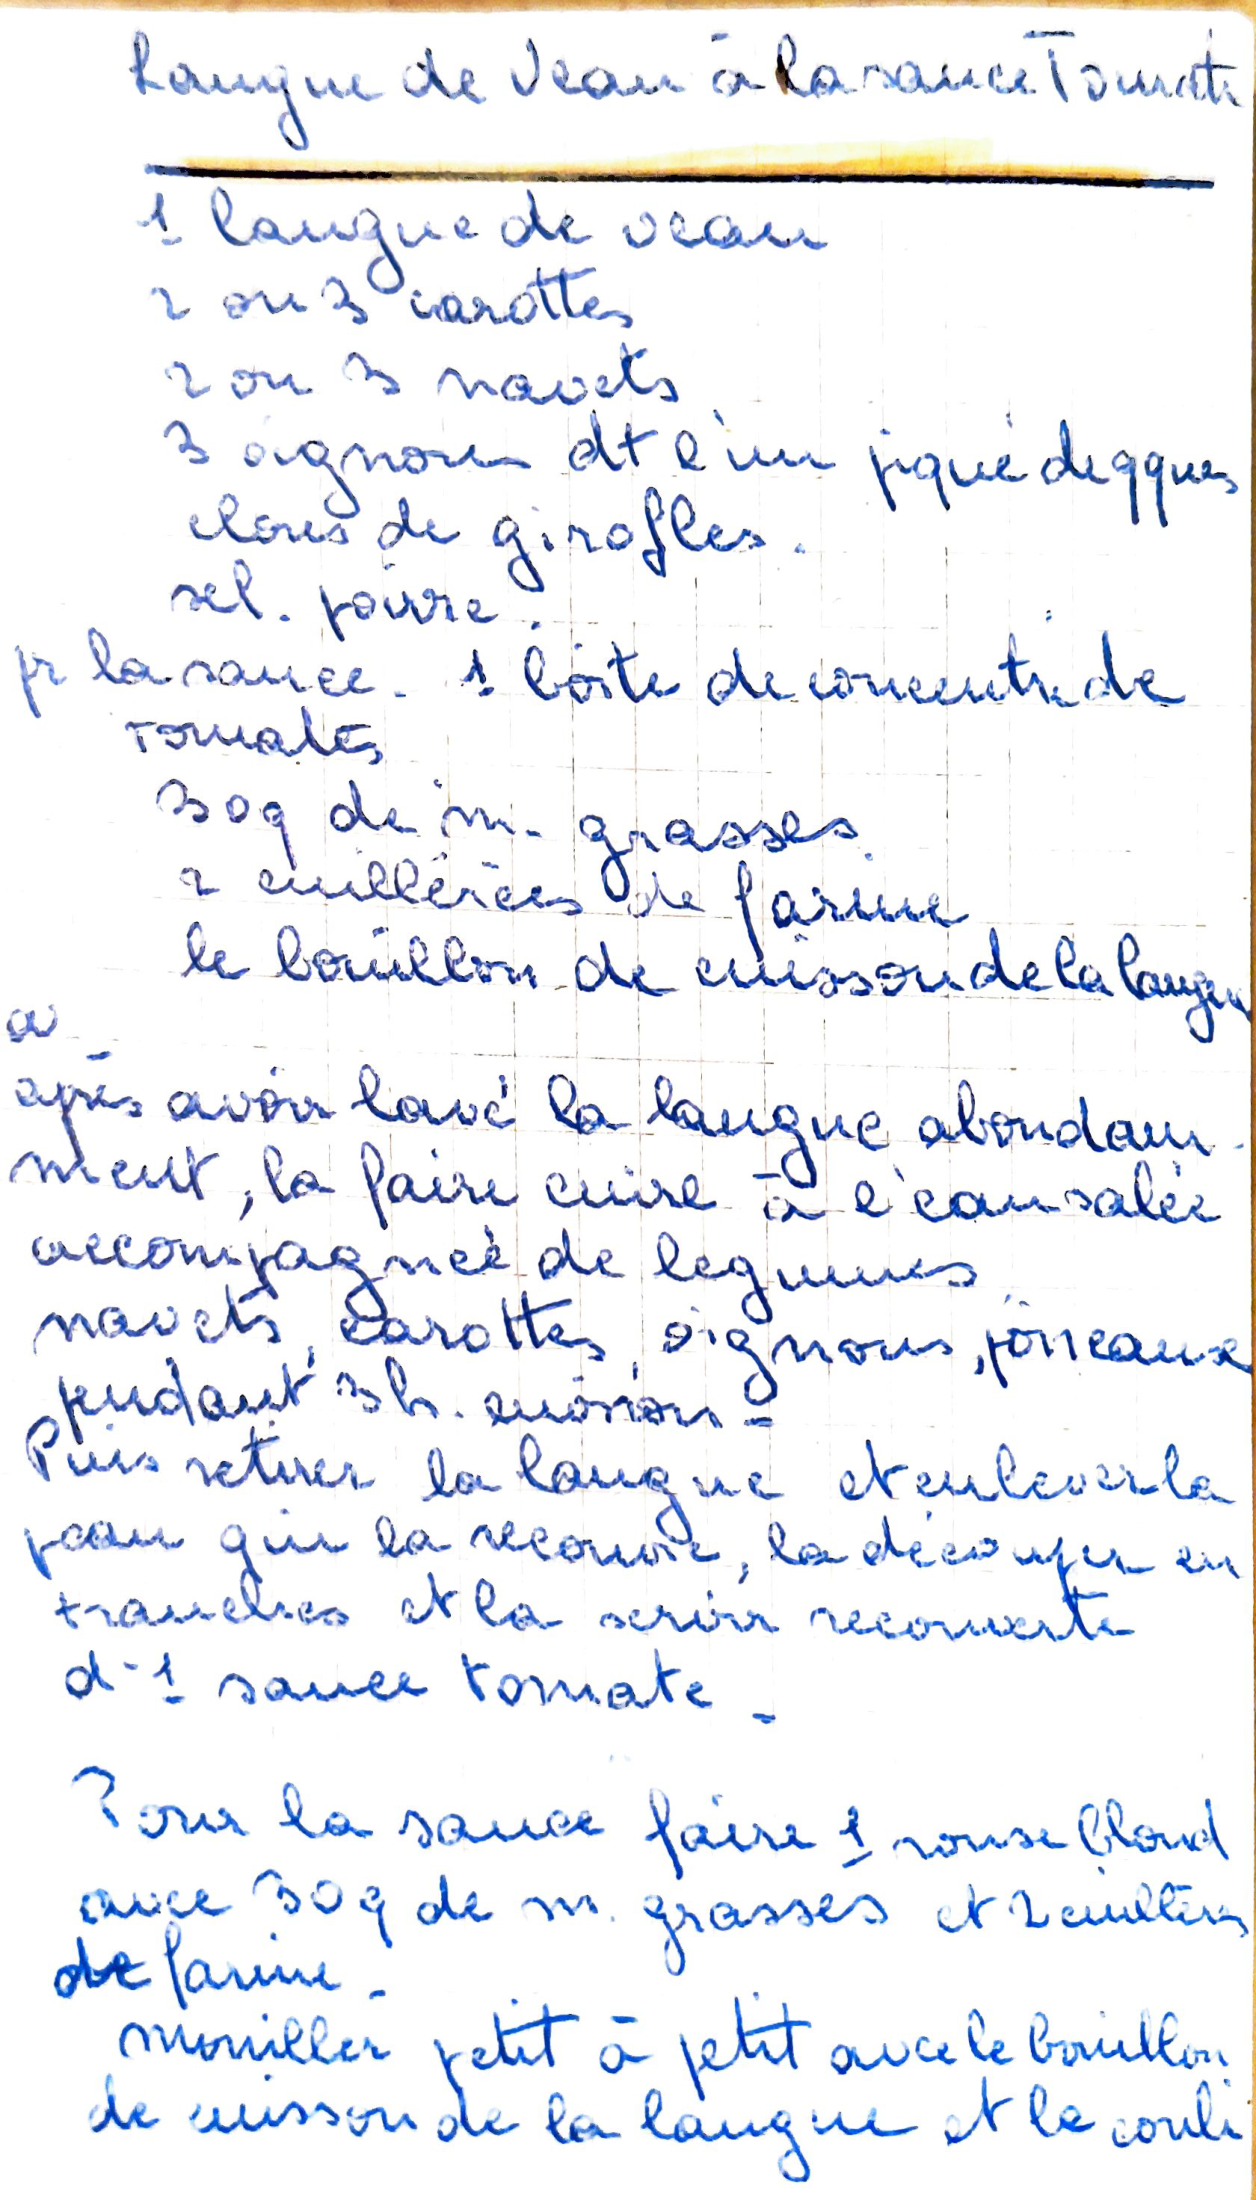 Langue de Veau à la sauce Tomate
1 langue de veau
2 ou 3 carottes
2 ou 3 navets
3 oignons dt l'un piqué de qques
clous de girofles.
sel. poivre.
pr la sauce. 1 boîte de concentré de
tomates
30g de m. grasses
2 cuillérées de farine
le bouillon de cuisson de la langue
a
après avoir lavé la langue abondam-
ment, la faire cuire à l'eau salée
accompagnée de legumes
navets, carottes, oignons, poireaux
pendant 3h. environ -
Puis retirer la langue et enlever la
peau qui la recouvre, la découper en
tranches et la servir recouverte
d'1 sauce tomate -
Pour la sauce faire 1 roux blond
avec 30g de m. grasses et 2 cuillères
de farine -
Mouiller petit à petit avec le bouillon
de cuisson de la langue et le couli